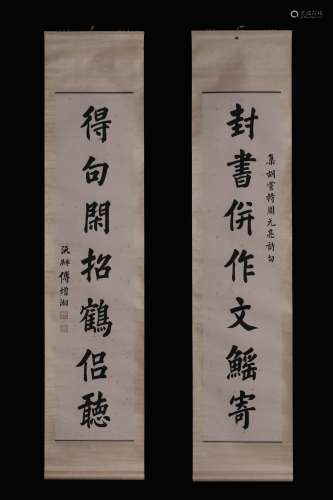 艺狐在线
封書併作文鰩寄
集胡周元亮詩句
得句閑招鶴侶聽
沅叔傅增湘